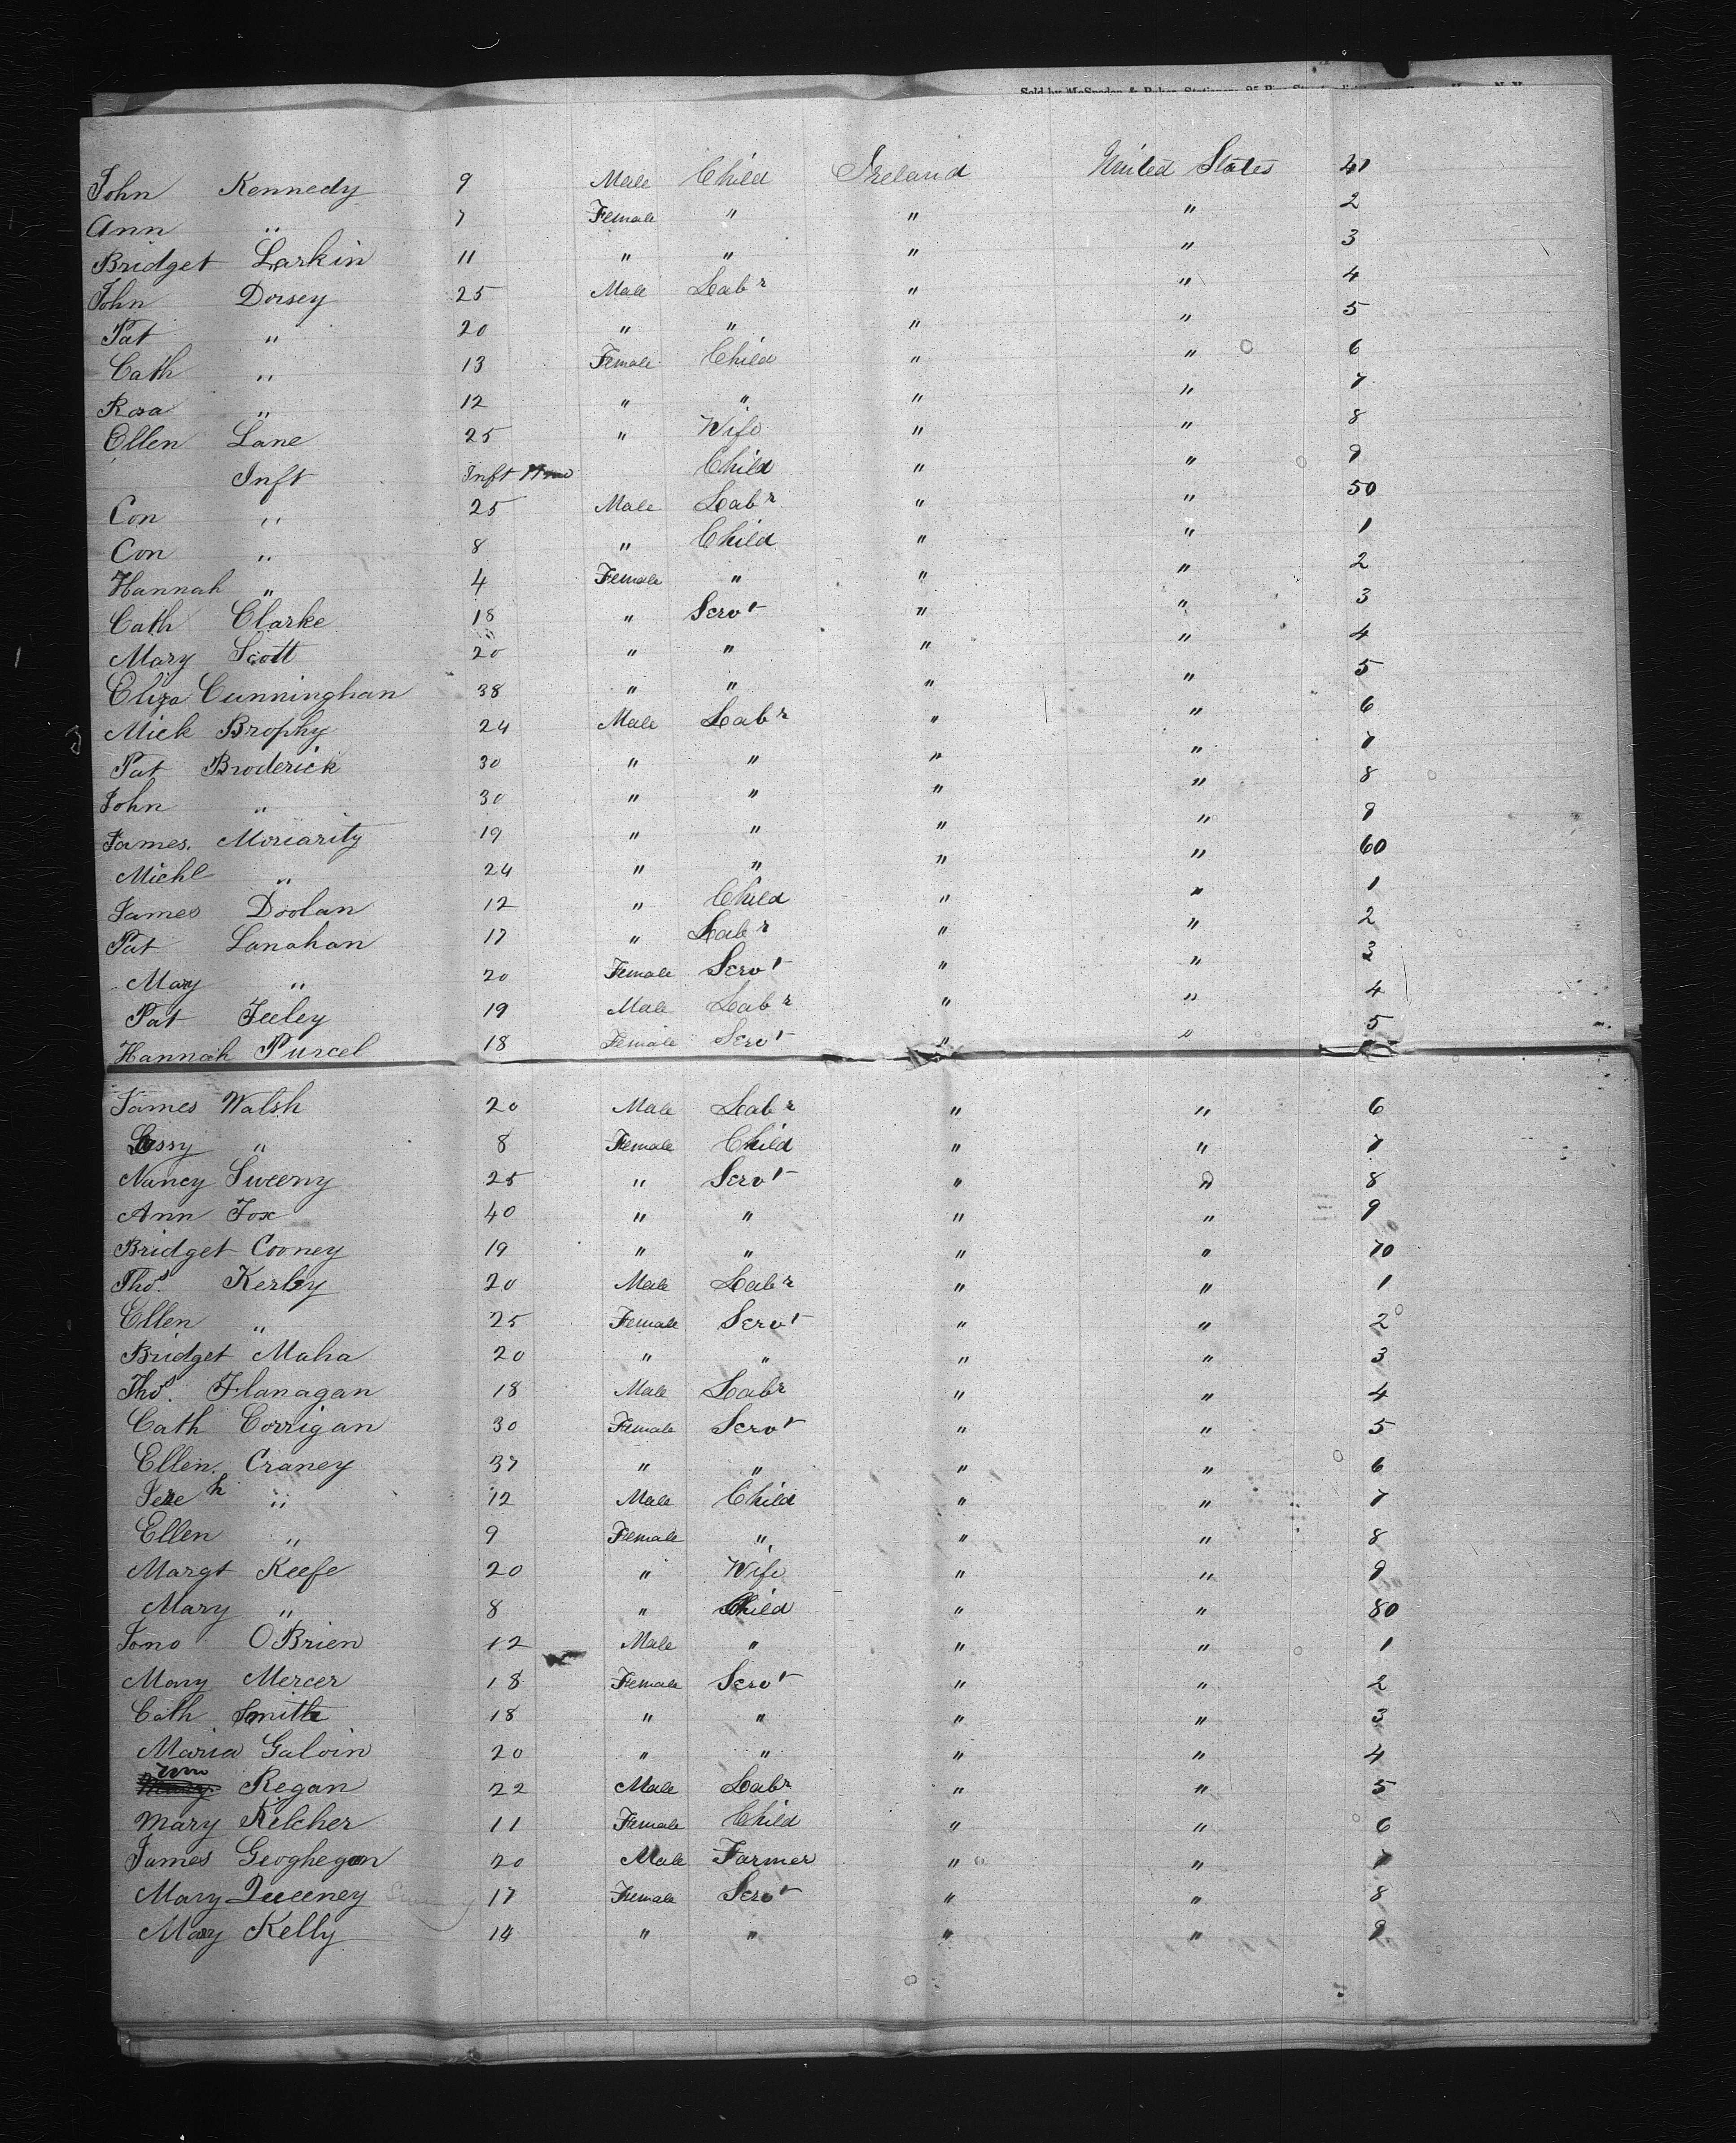 John Kennedy 9 Male Child Ireland United States 41
Ann " 7 Female " " " 2
Bridget Larkin 11 " " " " 3
John Dorsey 25 Male Labr " " 4
Pat " 20 " " " " 5
Cath " 13 Female Child " " 6
Rosa " 12 " " " " 7
Ellen Lane 25 " Wife " " 8
Inft Inft 11 mo Child " " 9
Con " 25 Male Labr " " 50
Con " 8 " Child " " 1
Hannah " 4 Female " " " 2
Cath Clarke 18 " Servt " " 3
Mary Scott 20 " " " " 4
Eliza Cunninghan 38 " " " " 5
Mick Brophy 24 Male Labr " " 6
Pat Broderick 30 " " " " 7
John " 30 " " " " 8
James Moriarity 19 " " " " 9
Michl " 24 " " " " 60
James Doolan 12 " Child " " 1
Pat Lanahan 17 " Labr " " 2
Mary " 20 Female Servt " " 3
Pat Feeley 19 Male Labr " " 4
Hannah Purcel 18 Female Servt " " 5
James Walsh 20 Male Labr " " 6
" 8 Female Child " " 7
Nancy Sweeny 25 " Servt " " 8
Ann Fox 40 " " " " 9
Bridget Cooney 19 " " " " 70
Thos. Kerby 20 Male Labr " " 1
Ellen " 25 Female Servt " " 2
Bridget Maha 20 " " " " 3
Thos. Flanagan 18 Male Labr " " 4
Cath Corrigan 30 Female Servt " " 5
Ellen Craney 37 " " " " 6
Jereh " 12 Male Child " " 7
Ellen " 9 Female " " " 8
Margt Keefe 20 " Wife " " 9
Mary " 8 " Child " " 80
Jono OBrien 12 Male " " " 1
Mary Mercer 18 Female Servt " " 2
Cath Smith 18 " " " " 3
Maria Galvin 20 " " " " 4
Regan 22 Male Labr " " 5
Mary Kelcher 11 Female Child " " 6
James Geoghegan 20 Male Farmer " " 7
Mary Queeney 17 Female Servt " " 8
Mary Kelly 14 " " " " 9